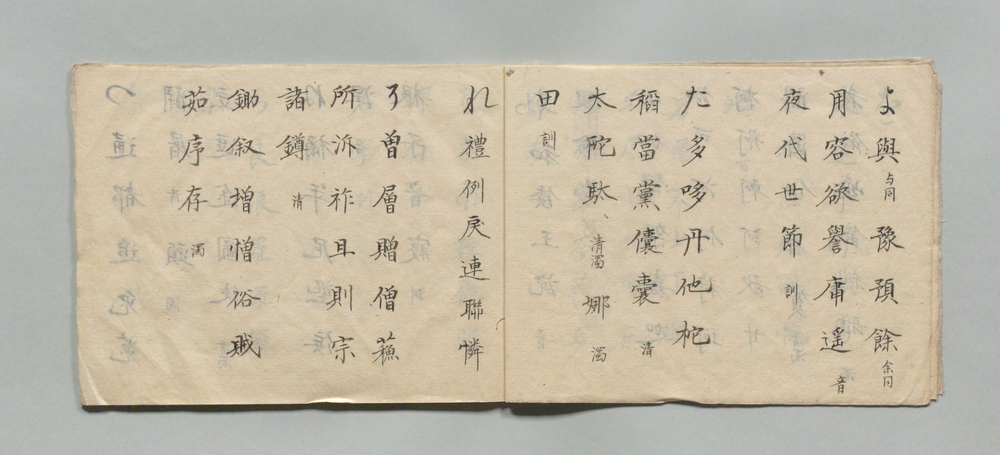 よ與与同豫預餘余同
用容欲譽庸遥音
夜代世節訓
た多哆丹他柁
稻當黨儻囊清
太陀馱清濁娜濁
田訓
れ禮例戾連聯憐
そ曽層贈僧蘓
所泝祚且則宗
諸鐏清
鋤叙増憎俗賊
茹序存濁